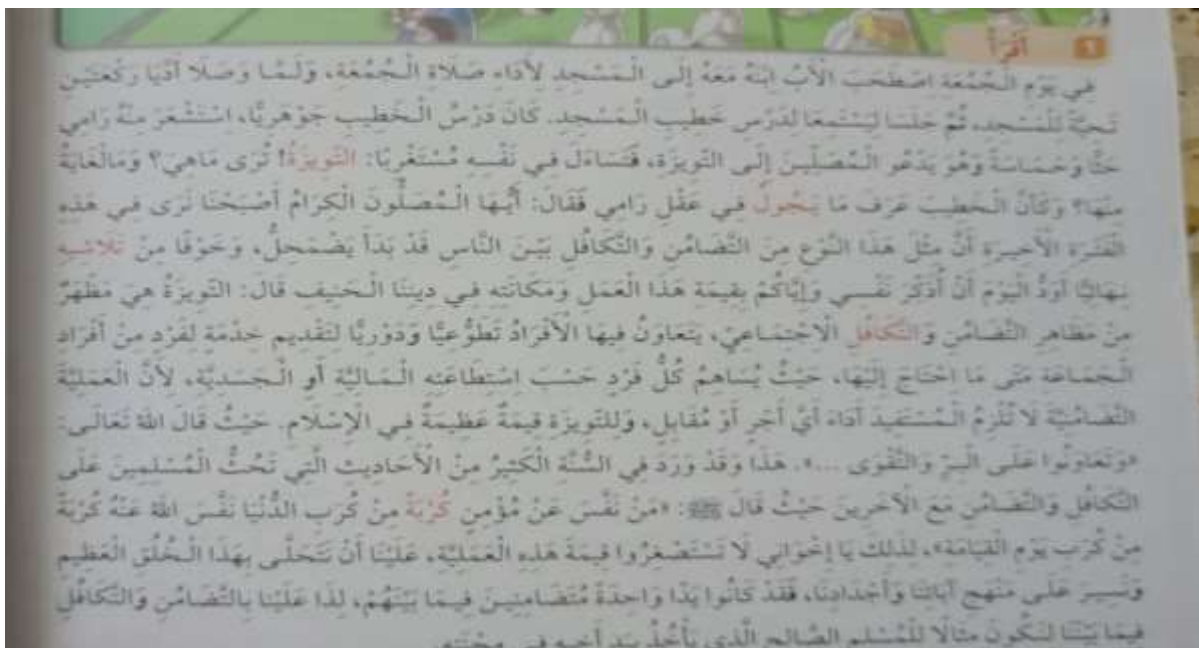 1 أَقْرَأُ
فِي يَوْمِ الْجُمُعَةِ اصْطَحَبَ الْأَبُ ابْنَهُ مَعَهُ إِلَى الْمَسْجِدِ لِأَدَاءِ صَلَاةِ الْجُمُعَةِ، وَلَمَّا وَصَلَا أَدَّيَا رَكْعَتَيْنِ
تَحِيَّةً لِلْمَسْجِدِ، ثُمَّ جَلَسَا لِيَسْتَمِعَا لِدَرْسِ خَطِيبِ الْمَسْجِدِ. كَانَ دَرْسُ الْخَطِيبِ جَوْهَرِيًّا، اسْتَشْعَرَ مِنْهُ رَامِي
حَثًّا وَحَمَاسَةً وَهُوَ يَدْعُو الْمُصَلِّينَ إِلَى التَّوِيزَةِ، فَتَسَاءَلَ فِي نَفْسِهِ مُسْتَغْرِبًا: التَّوِيزَةُ! تُرَى مَاهِيَ؟ وَمَالْغَايَةُ
مِنْهَا؟ وَكَأَنَّ الْخَطِيبَ عَرَفَ مَا يَجُولُ فِي عَقْلِ رَامِي فَقَالَ: أَيُّهَا الْمُصَلُّونَ الْكِرَامُ أَصْبَحْنَا نَرَى فِي هَذِهِ
الْفَتْرَةِ الْأَخِيرَةِ أَنَّ مِثْلَ هَذَا النَّوْعِ مِنَ التَّضَامُنِ وَالتَّكَافُلِ بَيْنَ النَّاسِ قَدْ بَدَأَ يَضْمَحِلُّ، وَخَوْفًا مِنْ تَلَاشِيهِ
نِهَائِيًّا أَوَدُّ الْيَوْمَ أَنْ أُذَكِّرَ نَفْسِي وَإِيَّاكُمْ بِقِيمَةِ هَذَا الْعَمَلِ وَمَكَانَتِهِ فِي دِينِنَا الْحَنِيفِ قَالَ: التَّوِيزَةُ هِيَ مَظْهَرٌ
مِنْ مَظَاهِرِ التَّضَامُنِ وَالتَّكَافُلِ الْاجْتِمَاعِيِّ، يَتَعَاوَنُ فِيهَا الْأَفْرَادُ تَطَوُّعِيًّا وَدَوْرِيًّا لِتَقْدِيمِ خِدْمَةٍ لِفَرْدٍ مِنْ أَفْرَادِ
الْجَمَاعَةِ مَتَى مَا احْتَاجَ إِلَيْهَا، حَيْثُ يُسَاهِمُ كُلُّ فَرْدٍ حَسَبَ اسْتِطَاعَتِهِ الْمَالِيَّةِ أَوِ الْجَسَدِيَّةِ، لِأَنَّ الْعَمَلِيَّةَ
التَّضَامُنِيَّةَ لَا تُلْزِمُ الْمُسْتَفِيدَ أَدَاءَ أَيِّ أَجْرٍ أَوْ مُقَابِلٍ، وَلِلتَّوِيزَةِ قِيمَةٌ عَظِيمَةٌ فِي الْإِسْلَامِ. حَيْثُ قَالَ اللهُ تَعَالَى:
«وَتَعَاوَنُوا عَلَى الْبِرِّ وَالتَّقْوَى ...». هَذَا وَقَدْ وَرَدَ فِي السُّنَّةِ الْكَثِيرُ مِنَ الْأَحَادِيثِ الَّتِي تَحُثُّ الْمُسْلِمِينَ عَلَى
التَّكَافُلِ وَالتَّضَامُنِ مَعَ الْآخَرِينَ حَيْثُ قَالَ ﷺ: «مَنْ نَفَّسَ عَنْ مُؤْمِنٍ كُرْبَةً مِنْ كُرَبِ الدُّنْيَا نَفَّسَ اللهُ عَنْهُ كُرْبَةً
مِنْ كُرَبِ يَوْمِ الْقِيَامَةِ»، لِذَلِكَ يَا إِخْوَانِي لَا تَسْتَصْغِرُوا قِيمَةَ هَذِهِ الْعَمَلِيَّةِ، عَلَيْنَا أَنْ نَتَحَلَّى بِهَذَا الْخُلُقِ الْعَظِيمِ
وَنَسِيرَ عَلَى مَنْهَجِ آبَائِنَا وَأَجْدَادِنَا، فَقَدْ كَانُوا يَدًا وَاحِدَةً مُتَضَامِنِينَ فِيمَا بَيْنَهُمْ، لِذَا عَلَيْنَا بِالتَّضَامُنِ وَالتَّكَافُلِ
فِيمَا بَيْنَنَا لِنَكُونَ مِثَالًا لِلْمُسْلِمِ الصَّالِحِ الَّذِي يَأْخُذُ بِيَدِ أَخِيهِ فِي مِحْنَتِهِ.